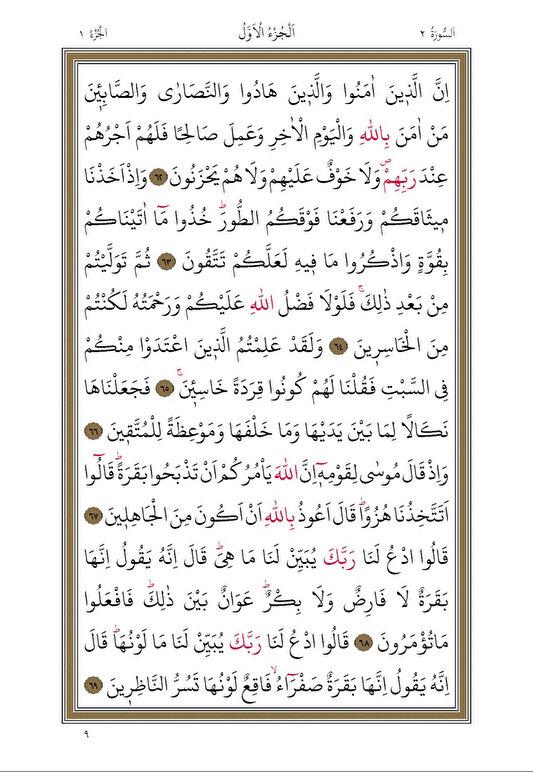 اَلسُّورَةُ ٢ اَلْجُزْءُ الْاَوَّلُ اَلْجُزْءُ ١
اِنَّ الَّذٖينَ اٰمَنُوا وَالَّذٖينَ هَادُوا وَالنَّصَارٰى وَالصَّابِـٖٔينَ
مَنْ اٰمَنَ بِاللّٰهِ وَالْيَوْمِ الْاٰخِرِ وَعَمِلَ صَالِحًا فَلَهُمْ اَجْرُهُمْ
عِنْدَ رَبِّهِمْۖ وَلَا خَوْفٌ عَلَيْهِمْ وَلَا هُمْ يَحْزَنُونَ ٦٢ وَاِذْ اَخَذْنَا
مٖيثَاقَكُمْ وَرَفَعْنَا فَوْقَكُمُ الطُّورَؕ خُذُوا مَٓا اٰتَيْنَاكُمْ
بِقُوَّةٍ وَاذْكُرُوا مَا فٖيهِ لَعَلَّكُمْ تَتَّقُونَ ٦٣ ثُمَّ تَوَلَّيْتُمْ
مِنْ بَعْدِ ذٰلِكَۚ فَلَوْلَا فَضْلُ اللّٰهِ عَلَيْكُمْ وَرَحْمَتُهُ لَكُنْتُمْ
مِنَ الْخَاسِرٖينَ ٦٤ وَلَقَدْ عَلِمْتُمُ الَّذٖينَ اعْتَدَوْا مِنْكُمْ
فِى السَّبْتِ فَقُلْنَا لَهُمْ كُونُوا قِرَدَةً خَاسِـٖٔينَۚ ٦٥ فَجَعَلْنَاهَا
نَكَالًا لِمَا بَيْنَ يَدَيْهَا وَمَا خَلْفَهَا وَمَوْعِظَةً لِلْمُتَّقٖينَ ٦٦
وَاِذْ قَالَ مُوسٰى لِقَوْمِهٖٓ اِنَّ اللّٰهَ يَاْمُرُكُمْ اَنْ تَذْبَحُوا بَقَرَةًؕ قَالُٓوا
اَتَتَّخِذُنَا هُزُوًاؕ قَالَ اَعُوذُ بِاللّٰهِ اَنْ اَكُونَ مِنَ الْجَاهِلٖينَ ٦٧
قَالُوا ادْعُ لَنَا رَبَّكَ يُبَيِّنْ لَنَا مَا هِىَؕ قَالَ اِنَّهُ يَقُولُ اِنَّهَا
بَقَرَةٌ لَا فَارِضٌ وَلَا بِكْرٌؕ عَوَانٌ بَيْنَ ذٰلِكَؕ فَافْعَلُوا
مَا تُؤْمَرُونَ ٦٨ قَالُوا ادْعُ لَنَا رَبَّكَ يُبَيِّنْ لَنَا مَا لَوْنُهَاؕ قَالَ
اِنَّهُ يَقُولُ اِنَّهَا بَقَرَةٌ صَفْرَٓاءُۙ فَاقِعٌ لَوْنُهَا تَسُرُّ النَّاظِرٖينَ ٦٩
٩